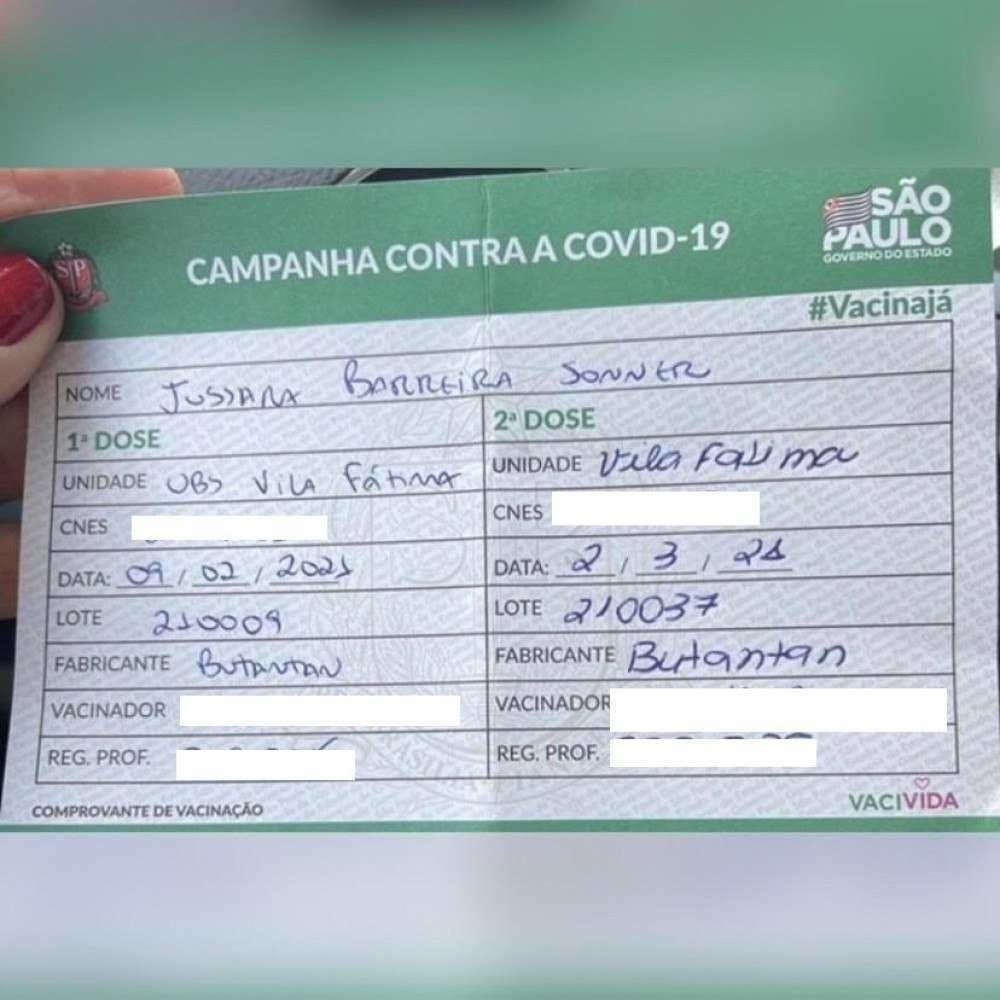 SÃO
PAULO
GOVERNO DO ESTADO
SP
CAMPANHA CONTRA A COVID-19
#Vacinajá
NOME JUSSARA BARREIRA SONNER
1ª DOSE 2ª DOSE
UNIDADE UBS VILA FÁTIMA UNIDADE Vila Fatima
CNES CNES
DATA: 09/02/2021 DATA: 2/3/21
LOTE 210009 LOTE 210037
FABRICANTE BUTANTAN FABRICANTE Butantan
VACINADOR VACINADOR
REG. PROF. REG. PROF.
COMPROVANTE DE VACINAÇÃO VACIVIDA